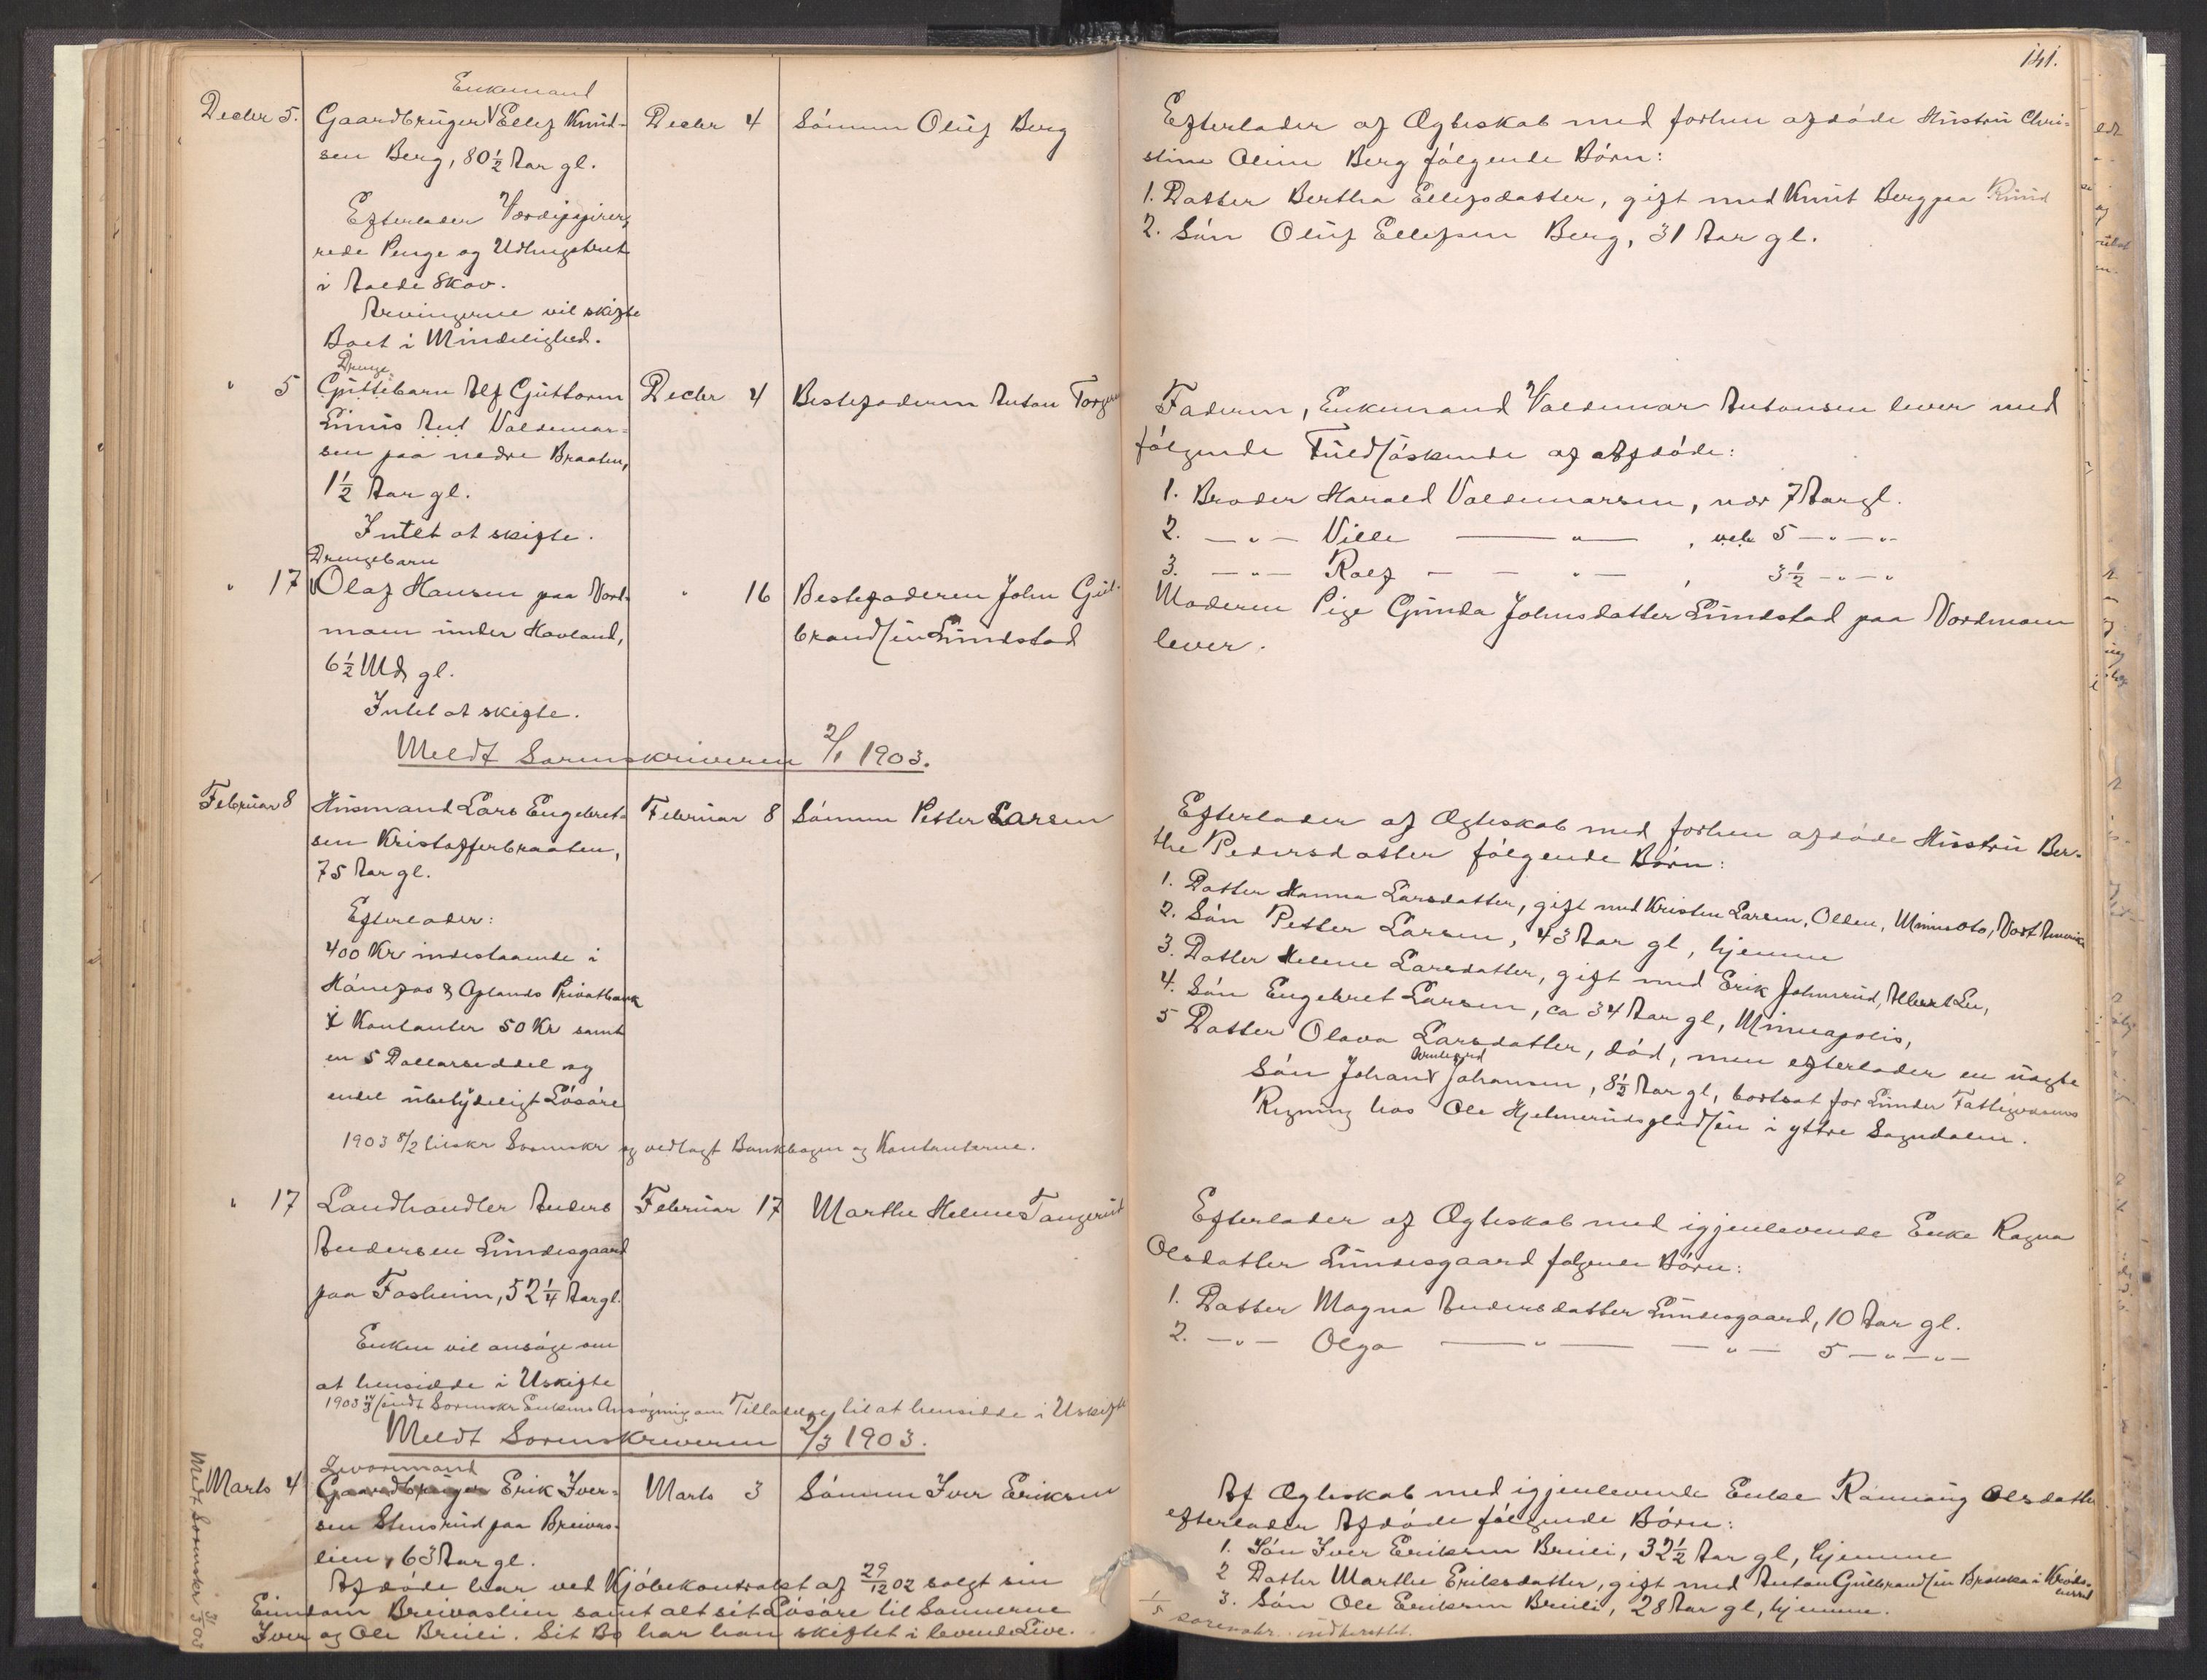 141.
Enkemand
Decbr 5. Gaardbruger Ellef Knud- Decbr 4 Sønnen Oluf Berg
sen Berg, 80 1/2 Aar gl.
Efterlader Værdipapirer,
rede Penge og
i Skov.
Arvingerne vil skifte
Boet i Mindelighed.
Efterlader af Ægteskab med forhen afdøde Hustru Chri-
stine Oline Berg følgende Børn:
1. Datter Bertha Ellefsdatter, gift med Knut Berg paa Ruud
2. Søn Oluf Ellefsen Berg, 31 Aar gl.
Drenge
" 5 Guttebarn Alf Guttorm Decbr 4 Bestefaderen Anton
Linus Valdemar-
sen paa nedre Braaten,
1 1/2 Aar gl.
Intet at skifte.
Faderen, Enkemand Valdemar Antonsen lever med
følgende Fuldsøskende af Afdøde:
1. Broder Harald Valdemarsen, nær 7 Aar gl.
2. — " — Ville — " — , vel 5 — " — " —
3. — " — Rolf — — " — , 3 1/2 — " — "
Drengebarn
" 17 Olaf Hansen paa Nord- " 16 Bestefaderen John Gul-
moen under Hovland, brandsen Lundstad
6 1/2 Md gl.
Intet at skifte.
Moderen Pige Gunda Johnsdatter Lundstad paa Nordmoen
lever.
Meldt Sorenskriveren 2/1 1903.
Februar 8 Husmand Lars Engebret- Februar 8 Sønnen Petter Larsen
sen Kristofferbraaten,
75 Aar gl.
Efterlader:
400 Kr indestaaende i
Hønefos & Oplands Privatbank
i Kontanter 50 Kr samt
en 5 Dollarseddel og
endel ubetydeligt Løsøre
1903 8/2 tilskr Sorenskr og vedlagt Bankbogen og Kontanterne.
Efterlader af Ægteskab med forhen afdøde Hustru Ber-
the Pedersdatter følgende Børn:
1. Datter Hanna Larsdatter, gift med Kristen Larsen, Olden, Minesota, Nort Amerika
2. Søn Petter Larsen, 43 Aar gl, hjemme
3. Datter Helene Larsdatter, gift med Erik Johnsrud, Albert Lea,
4. Søn Engebret Larsen, ca 34 Aar gl, Mineapolis,
5 Datter Olava Larsdatter, død, men efterlader en uægte
Søn Johan Johansen, 8 1/2 Aar gl, bortsat for Lunder Fattigvæsens
Regning hos Ole Hjelmerudsgladsen i yttre Sognedalen.
" 17 Landhandler Anders Februar 17 Marthe Helene Tangerud
Andersen Lundesgaard
paa Fosheim, 52 1/4 Aar gl.
Enken vil ansøge om
at hensidde i Uskifte
1903 sendt Sorenskr Enkens Ansøgning om Tilladelse til at hensidde i Uskifte
Efterlader af Ægteskab med igjenlevende Enke Ragna
Olsdatter Lundesgaard følgende Børn:
1. Datter Magna Andersdatter Lundesgaard, 10 Aar gl.
2. — " — Olga — " — — " — 5 — " — " —
Meldt Sorenskriveren 2/3 1903.
Marts 4 Gaardbruger Erik Iver- Marts 3 Sønnen Iver Eriksen
sen Stensrud paa Breivas-
lien, 63 Aar gl.
Afdøde har ved Kjøbekontrakt af 29/12 02 solgt sin
Eiendom Breivaslien samt alt sit Løsøre til Sønnerne
Iver og Ole Brueli. Sit Bo har han skiftet i levende Live.
Af Ægteskab med igjenlevende Enke Rønnaug Olsdatter
efterlader Afdøde følgende Børn:
1. Søn Iver Eriksen Brueli, 32 1/2 Aar gl, hjemme
2 Datter Marthe Eriksdatter, gift med Anton Gulbrandsen i
3. Søn Ole Eriksen Brueli, 28 Aar gl, hjemme.
1/5 sorenskr. indberettet.
Meldt Sorenskr 03